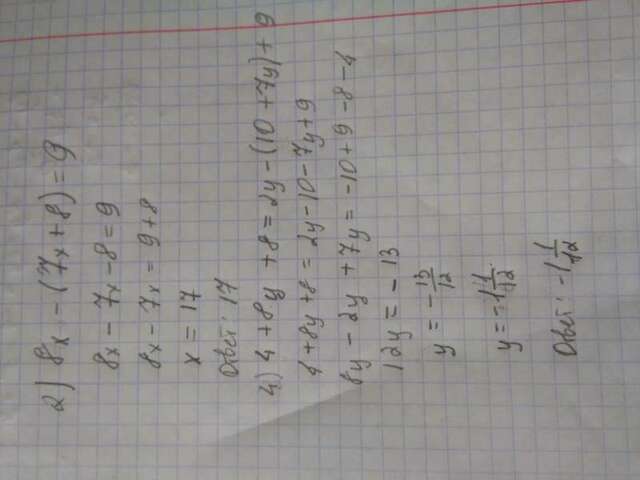 2) 8x - (7x + 8) = 9
8x - 7x - 8 = 9
8x - 7x = 9 + 8
x = 17
Ответ: 17
4) 4 + 8y + 8 = 2y - (10 + 7y) + 9
4 + 8y + 8 = 2y - 10 - 7y + 9
8y - 2y + 7y = -10 + 9 - 8 - 4
12y = - 13
y = - 13/12
y = -1 1/12
Ответ: -1 1/12